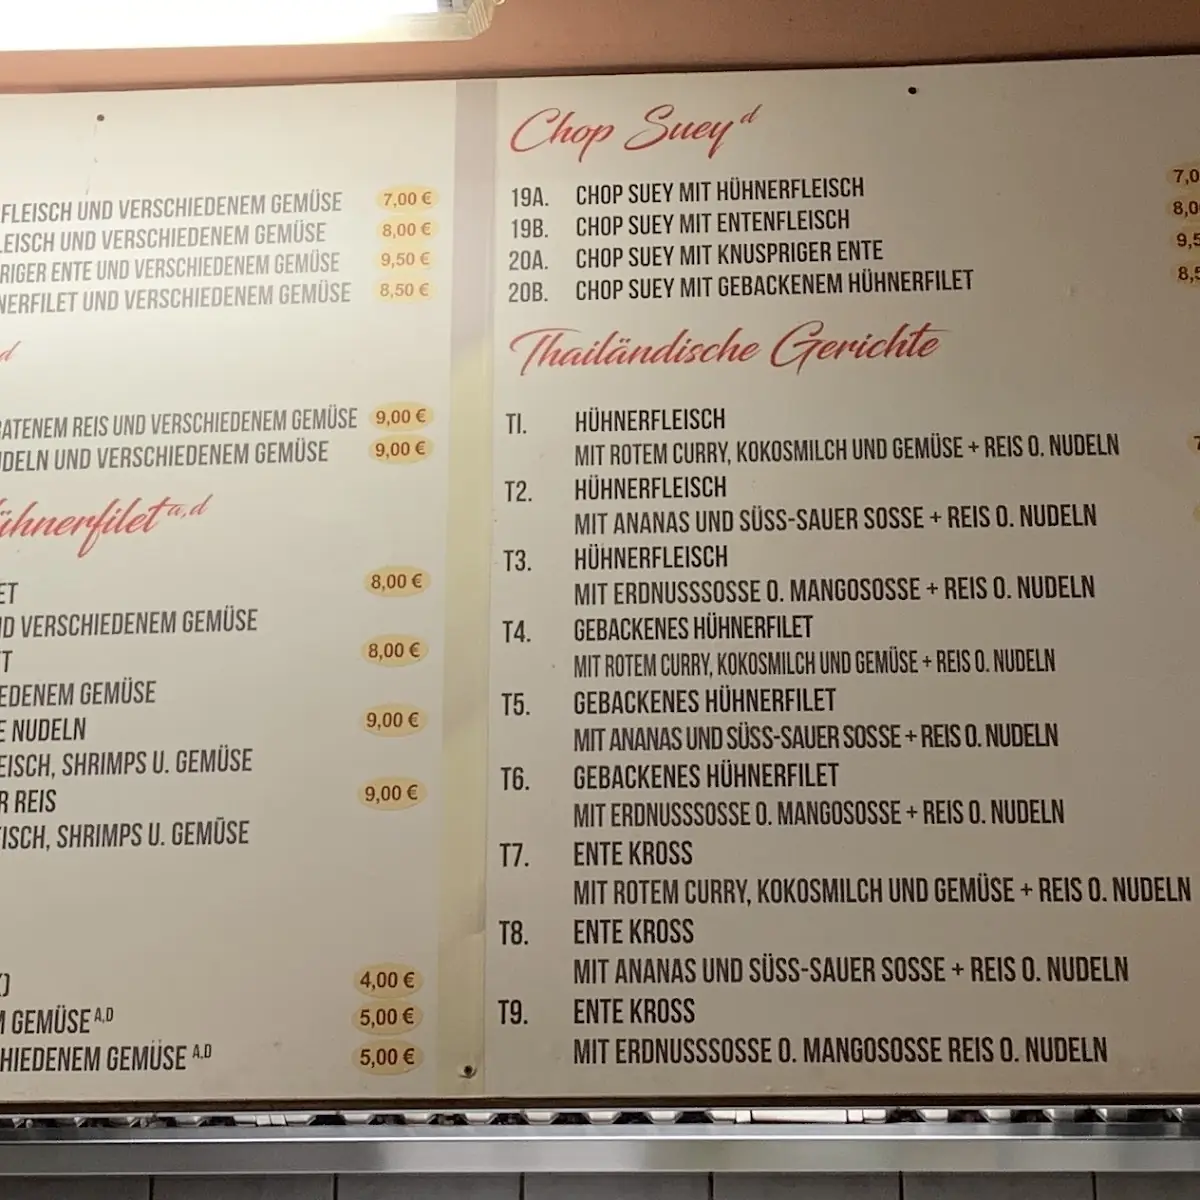 FLEISCH UND VERSCHIEDENEM GEMÜSE 7,00 €
LEISCH UND VERSCHIEDENEM GEMÜSE 8,00 €
RIGER ENTE UND VERSCHIEDENEM GEMÜSE 9,50 €
NERFILET UND VERSCHIEDENEM GEMÜSE 8,50 €
d
ATENEM REIS UND VERSCHIEDENEM GEMÜSE 9,00 €
DELN UND VERSCHIEDENEM GEMÜSE 9,00 €
ühnerfilet a,d
ET 8,00 €
ND VERSCHIEDENEM GEMÜSE
T 8,00 €
EDENEM GEMÜSE
E NUDELN 9,00 €
EISCH, SHRIMPS U. GEMÜSE
R REIS 9,00 €
ISCH, SHRIMPS U. GEMÜSE
4,00 €
M GEMÜSE A,D 5,00 €
HIEDENEM GEMÜSE A,D 5,00 €
Chop Suey d
19A. CHOP SUEY MIT HÜHNERFLEISCH 7,0
19B. CHOP SUEY MIT ENTENFLEISCH 8,0
20A. CHOP SUEY MIT KNUSPRIGER ENTE 9,5
20B. CHOP SUEY MIT GEBACKENEM HÜHNERFILET 8,5
Thailändische Gerichte
T1. HÜHNERFLEISCH
MIT ROTEM CURRY, KOKOSMILCH UND GEMÜSE + REIS O. NUDELN 7
T2. HÜHNERFLEISCH
MIT ANANAS UND SÜSS-SAUER SOSSE + REIS O. NUDELN
T3. HÜHNERFLEISCH
MIT ERDNUSSSOSSE O. MANGOSOSSE + REIS O. NUDELN
T4. GEBACKENES HÜHNERFILET
MIT ROTEM CURRY, KOKOSMILCH UND GEMÜSE + REIS O. NUDELN
T5. GEBACKENES HÜHNERFILET
MIT ANANAS UND SÜSS-SAUER SOSSE + REIS O. NUDELN
T6. GEBACKENES HÜHNERFILET
MIT ERDNUSSSOSSE O. MANGOSOSSE + REIS O. NUDELN
T7. ENTE KROSS
MIT ROTEM CURRY, KOKOSMILCH UND GEMÜSE + REIS O. NUDELN
T8. ENTE KROSS
MIT ANANAS UND SÜSS-SAUER SOSSE + REIS O. NUDELN
T9. ENTE KROSS
MIT ERDNUSSSOSSE O. MANGOSOSSE REIS O. NUDELN